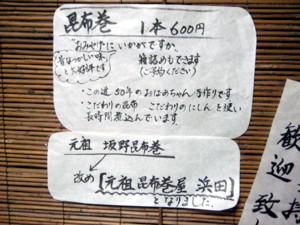 昆布巻 1本600円
おみやげにいかがですか、
昔なつかしい味
と大好評です
箱詰めもできます
(ご予約ください)
・この道50年のおばあちゃん手作りです
・こだわりの昆布 こだわりのにしんと使い
長時間煮込んでいます。
元祖 坂野昆布巻
改め
【元祖昆布巻屋 浜田】
となりました。
歓迎致